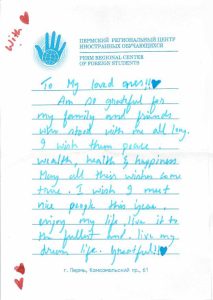 With
ПЕРМСКИЙ РЕГИОНАЛЬНЫЙ ЦЕНТР
ИНОСТРАННЫХ ОБУЧАЮЩИХСЯ
PERM REGIONAL CENTER
OF FOREIGN STUDENTS
To My loved ones!!
Am so grateful for
my family and friends
who stood with me all long.
I wish them peace,
wealth, health & happiness.
May all their wishes come
true. I wish I meet
nice people this year,
enjoy my life, live it to
the fullest and live my
dream life. Grateful!!
г. Пермь, Комсомольский пр., 61